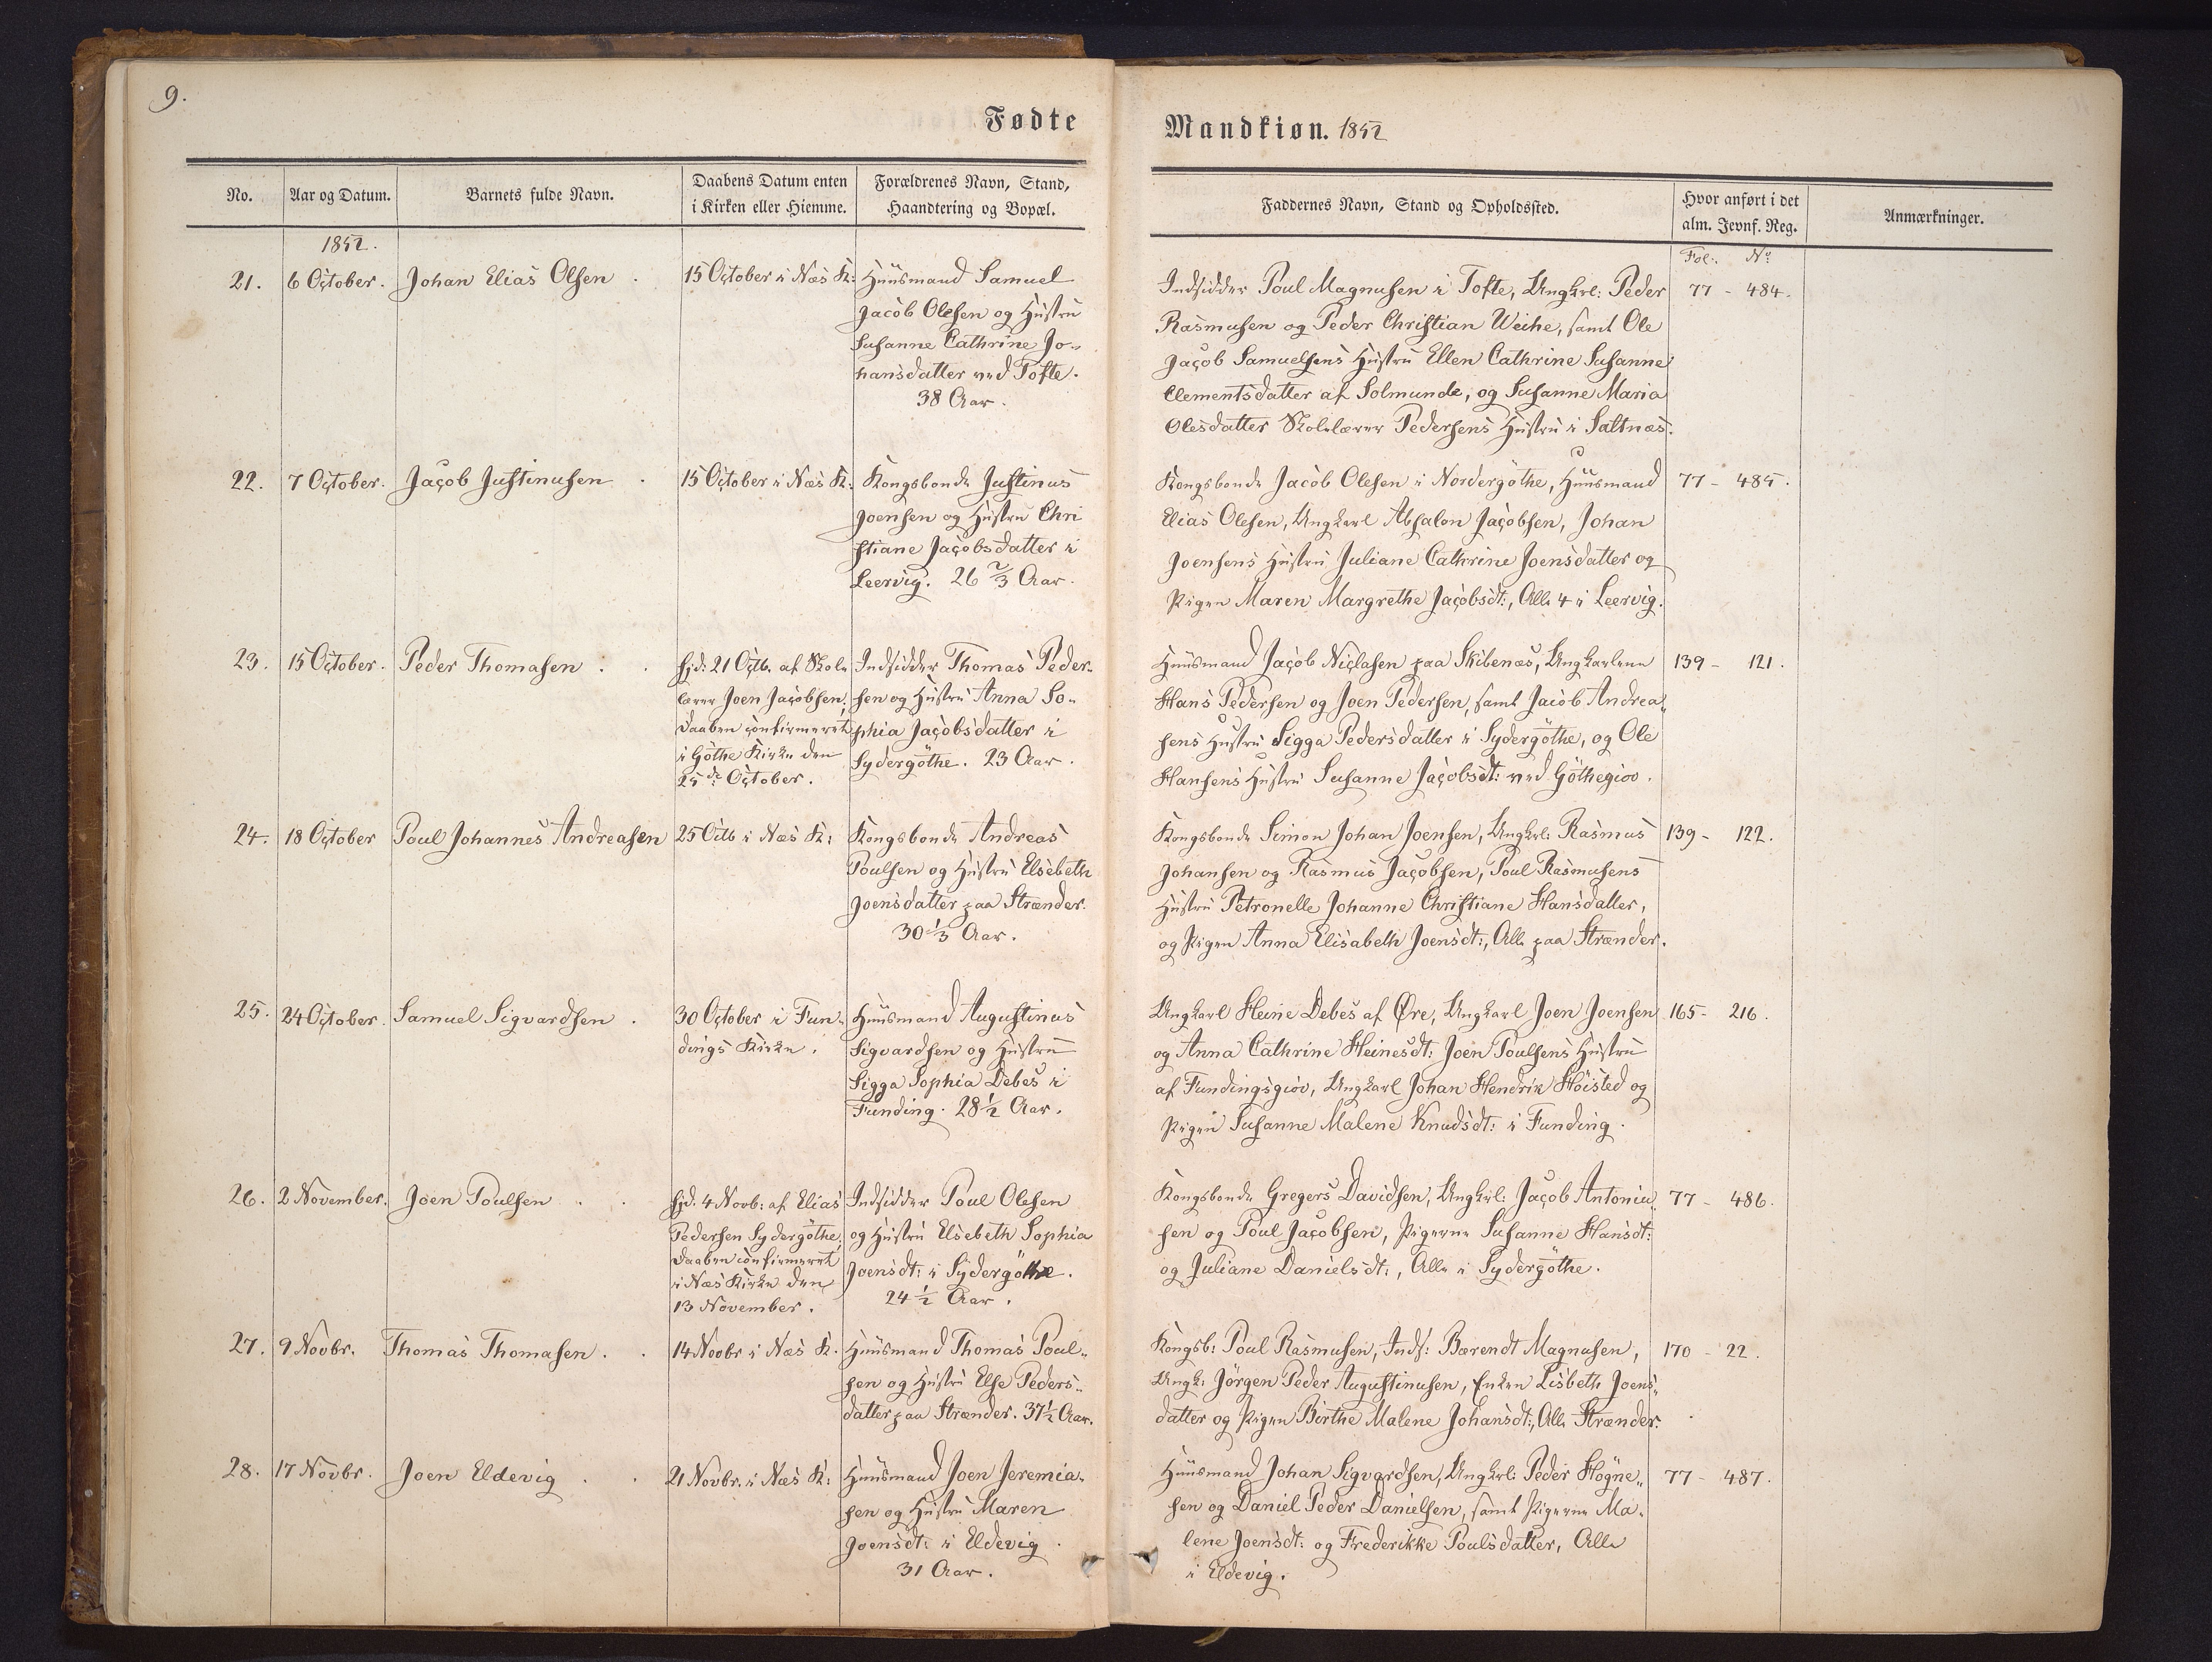 9.
Fødte
Mandkiøn. 1852
No.
Aar og Datum.
Barnets fulde Navn.
Daabens Datum enten
i Kirken eller Hiemme.
Forældrenes Navn, Stand,
Haandtering og Bopæl.
Faddernes Navn, Stand og Opholdssted.
Hvor anført i det
alm. Jevnf. Reg.
Anmærkninger.
1852.
Fol: No
21.
6 October.
Johan Elias Olsen
15 October i Næs K:
Huusmand Samuel
Jacob Olesen og Hustru
Susanne Cathrine Jo-
hansdatter ved Tofte.
38 Aar.
Indsidder Poul Magnusen i Tofte, Ungkrl: Peder
Rasmusen og Peder Christian Weihe, samt Ole
Jacob Samuelsens Hustru Ellen Cathrine Susanne
Clementsdatter af Solmunde, og Susanne Maria
Olesdatter Skolelærer Pedersens Hustru i Saltnæs.
77 - 484.
22.
7 October.
Jacob Justinusen
15 October i Næs K:
Kongsbonde Justinus
Joensen og Hustru Chri
stiane Jacobsdatter i
Leervig. 26 2/3 Aar.
Kongsbonde Jacob Olesen i Nordergøthe, Huusmand
Elias Olesen, Ungkarl Absalon Jacobsen, Johan
Joensens Hustru Juliane Cathrine Joensdatter og
Pigen Maren Margrethe Jacobsdt:, Alle 4 i Leervig.
77 - 485.
23.
15 October.
Peder Thomasen
hjd: 21 Octb. af Skole
lærer Joen Jacobsen,
Daaben confirmeret
i Gøthe Kirke den
25de October.
Indsidder Thomas Peder-
sen og Hustru Anna So-
phia Jacobsdatter i
Sydergøthe. 23 Aar.
Huusmand Jacob Niclasen paa Skibenæs, Ungkarlene
Hans Pedersen og Joen Pedersen, samt Jacob Andrea-
sens Hustru Sigga Pedersdatter i Sydergøthe, og Ole
Hansens Hustru Susanne Jacobsdt: ved Gøthegiov.
139 - 121.
24.
18 October
Poul Johannes Andreasen
25 Octb i Næs K:
Kongsbonde Andreas
Poulsen og Hustru Elsebeth
Joensdatter paa Strænder.
30 1/3 Aar.
Kongsbonde Simon Johan Joensen, Ungkrl: Rasmus
Johansen og Rasmus Jacobsen, Poul Rasmusens
Hustru Petronelle Johanne Christiane Hansdatter,
og Pigen Anna Elisabeth Joensdt:, Alle paa Strænder.
139 - 122.
25.
24 October.
Samuel Sigvardsen
30 October i Fun-
dings Kirke.
Huusmand Augustinus
Sigvardsen og Hustru
Sigga Sophia Debes i
Funding. 28 1/2 Aar.
Ungkarl Heine Debes af Øre, Ungkarl Joen Joensen
og Anna Cathrine Heinesdt: Joen Poulsens Hustru
af Fundingsgiov, Ungkarl Johan Hendrik Høisted og
Pigen Susanne Malene Knudsdt: i Funding.
165 - 216.
26.
2 November.
Joen Poulsen
hjd. 4 Novb: af Elias
Pedersen Sydergøthe,
Daaben confirmeret
i Næs Kirke den
13 November.
Indsidder Poul Olesen
og Hustru Elsebeth Sophia
Joensdt: i Sydergøthe.
24 1/2 Aar.
Kongsbonde Gregers Davidsen, Ungkrl: Jacob Antoniu-
sen og Poul Jacobsen, Pigerne Susanne Hansdt:
og Juliane Danielsdt:, Alle i Sydergøthe.
77 - 486.
27.
9 Novbr.
Thomas Thomasen
14 Novbr i Næs K.
Huusmand Thomas Poul-
sen og Hustru Else Peders-
datter paa Strænder. 37 1/2 Aar.
Kongsb: Poul Rasmusen, Inds: Bærendt Magnusen,
Ungk: Jörgen Peder Augustinusen, Enken Lisbeth Joens-
datter og Pigen Birthe Malene Johansdt:, Alle Strænder.
170 - 22.
28.
17 Novbr.
Joen Eldevig
21 Novbr. i Næs K:
Huusmand Joen Jeremia-
sen og Hustru Maren
Joensdt: i Eldevig
31 Aar.
Huusmand Johan Sigvardsen, Ungkrl: Peder Høgne-
sen og Daniel Peder Danielsen, samt Pigerne Ma-
lene Joensdt: og Frederikke Poulsdatter, Alle
i Eldevig.
77 - 487.